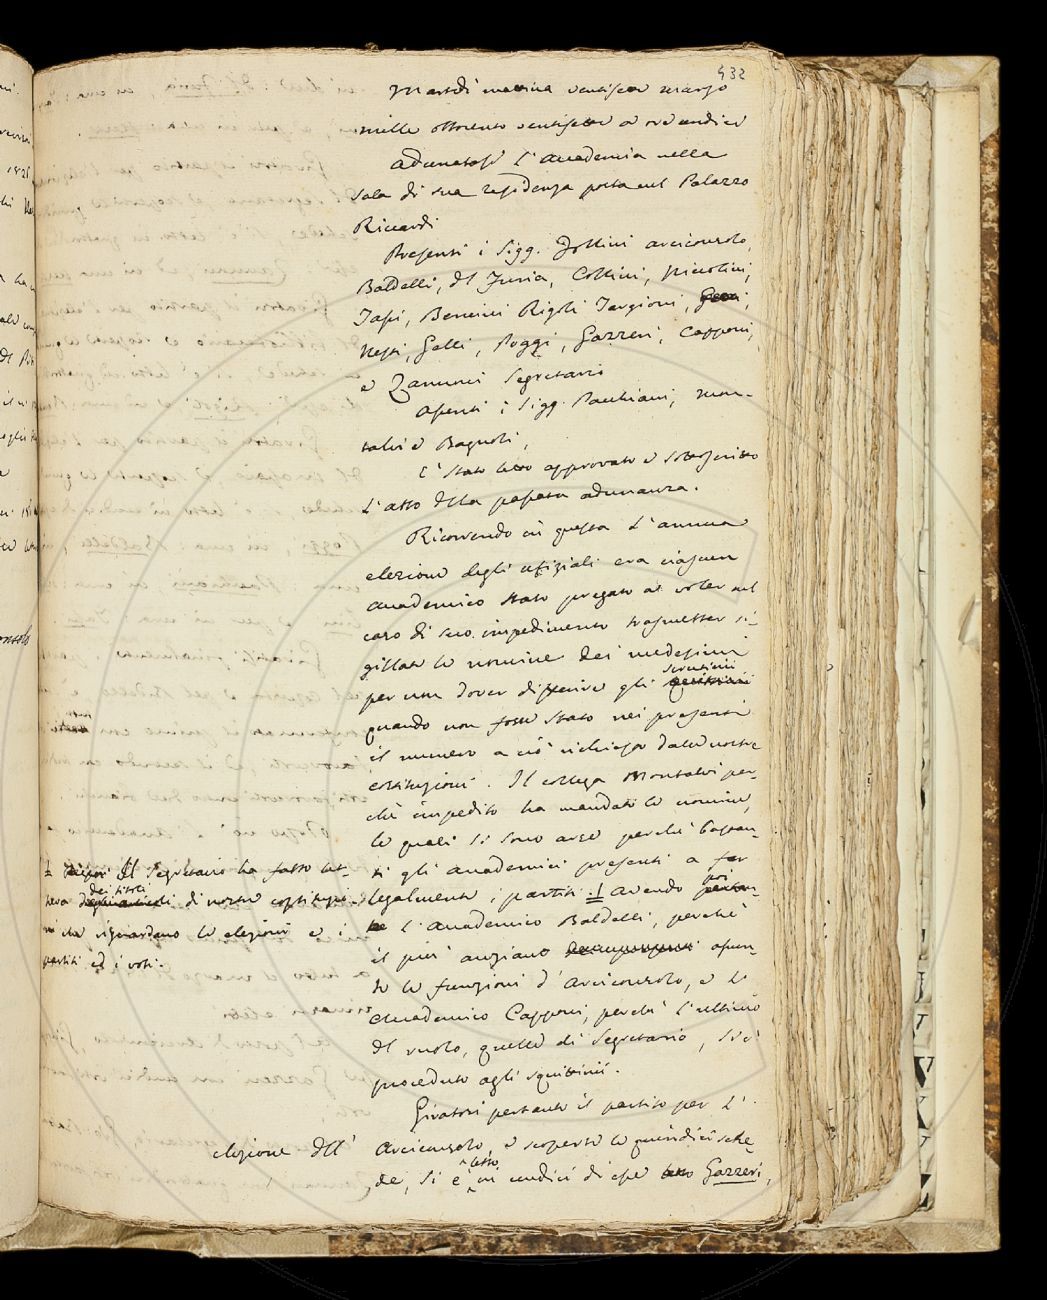 432
Martedì mattina ventisette marzo
mille ottocento ventisette a ore undici
adunatasi l'accademia nella
Sala di sua residenza posta nel Palazzo
Riccardi
Presenti i Sigg. Follini arciconsolo,
Baldelli, del Furia, Collini, Niccolini,
Sassi, Bencini Rigoli Targioni,
Nesti, Gelli, Poggi, Gazzeri, Capponi,
e Zannoni Segretario
Assenti i Sigg. Pacchiani, Mon-
talvi e Bagnoli,
È stato letto approvato e sottoscritto
l'atto della passata adunanza.
Ricorrendo in questa l'annua
elezione degli ufiziali era ciascun
accademico stato pregato a voler nel
caso di suo impedimento trasmetter si-
gillate le nomine dei medesimi
per non dover differire gli scrutinii
quando non fosse stato nei presenti
il numero a ciò richiesto dalle nostre
costituzioni. Il collega Montalvi per-
chè impedito ha mandate le nomine,
le quali si sono arse perchè bastan-
ti gli accademici presenti a far
legalmente i partiti. I avendo poi
l'accademico Baldelli, perchè
il più anziano assun-
te le funzioni d'Arciconsolo, e l'
accademico Capponi, perchè l'ultimo
del ruolo, quelle di Segretario, si è
proceduto agli squittinii.
Giratosi pertanto il partito per l'
elezione dell' Arciconsolo, e scoperte le quindici sche-
de, si è letto in undici di esse Gazzeri,
I Il Segretario ha fatto let-
tura dei titoli di nostre costituzio-
ni che riguardano le elezioni e i
partiti ed i voti.